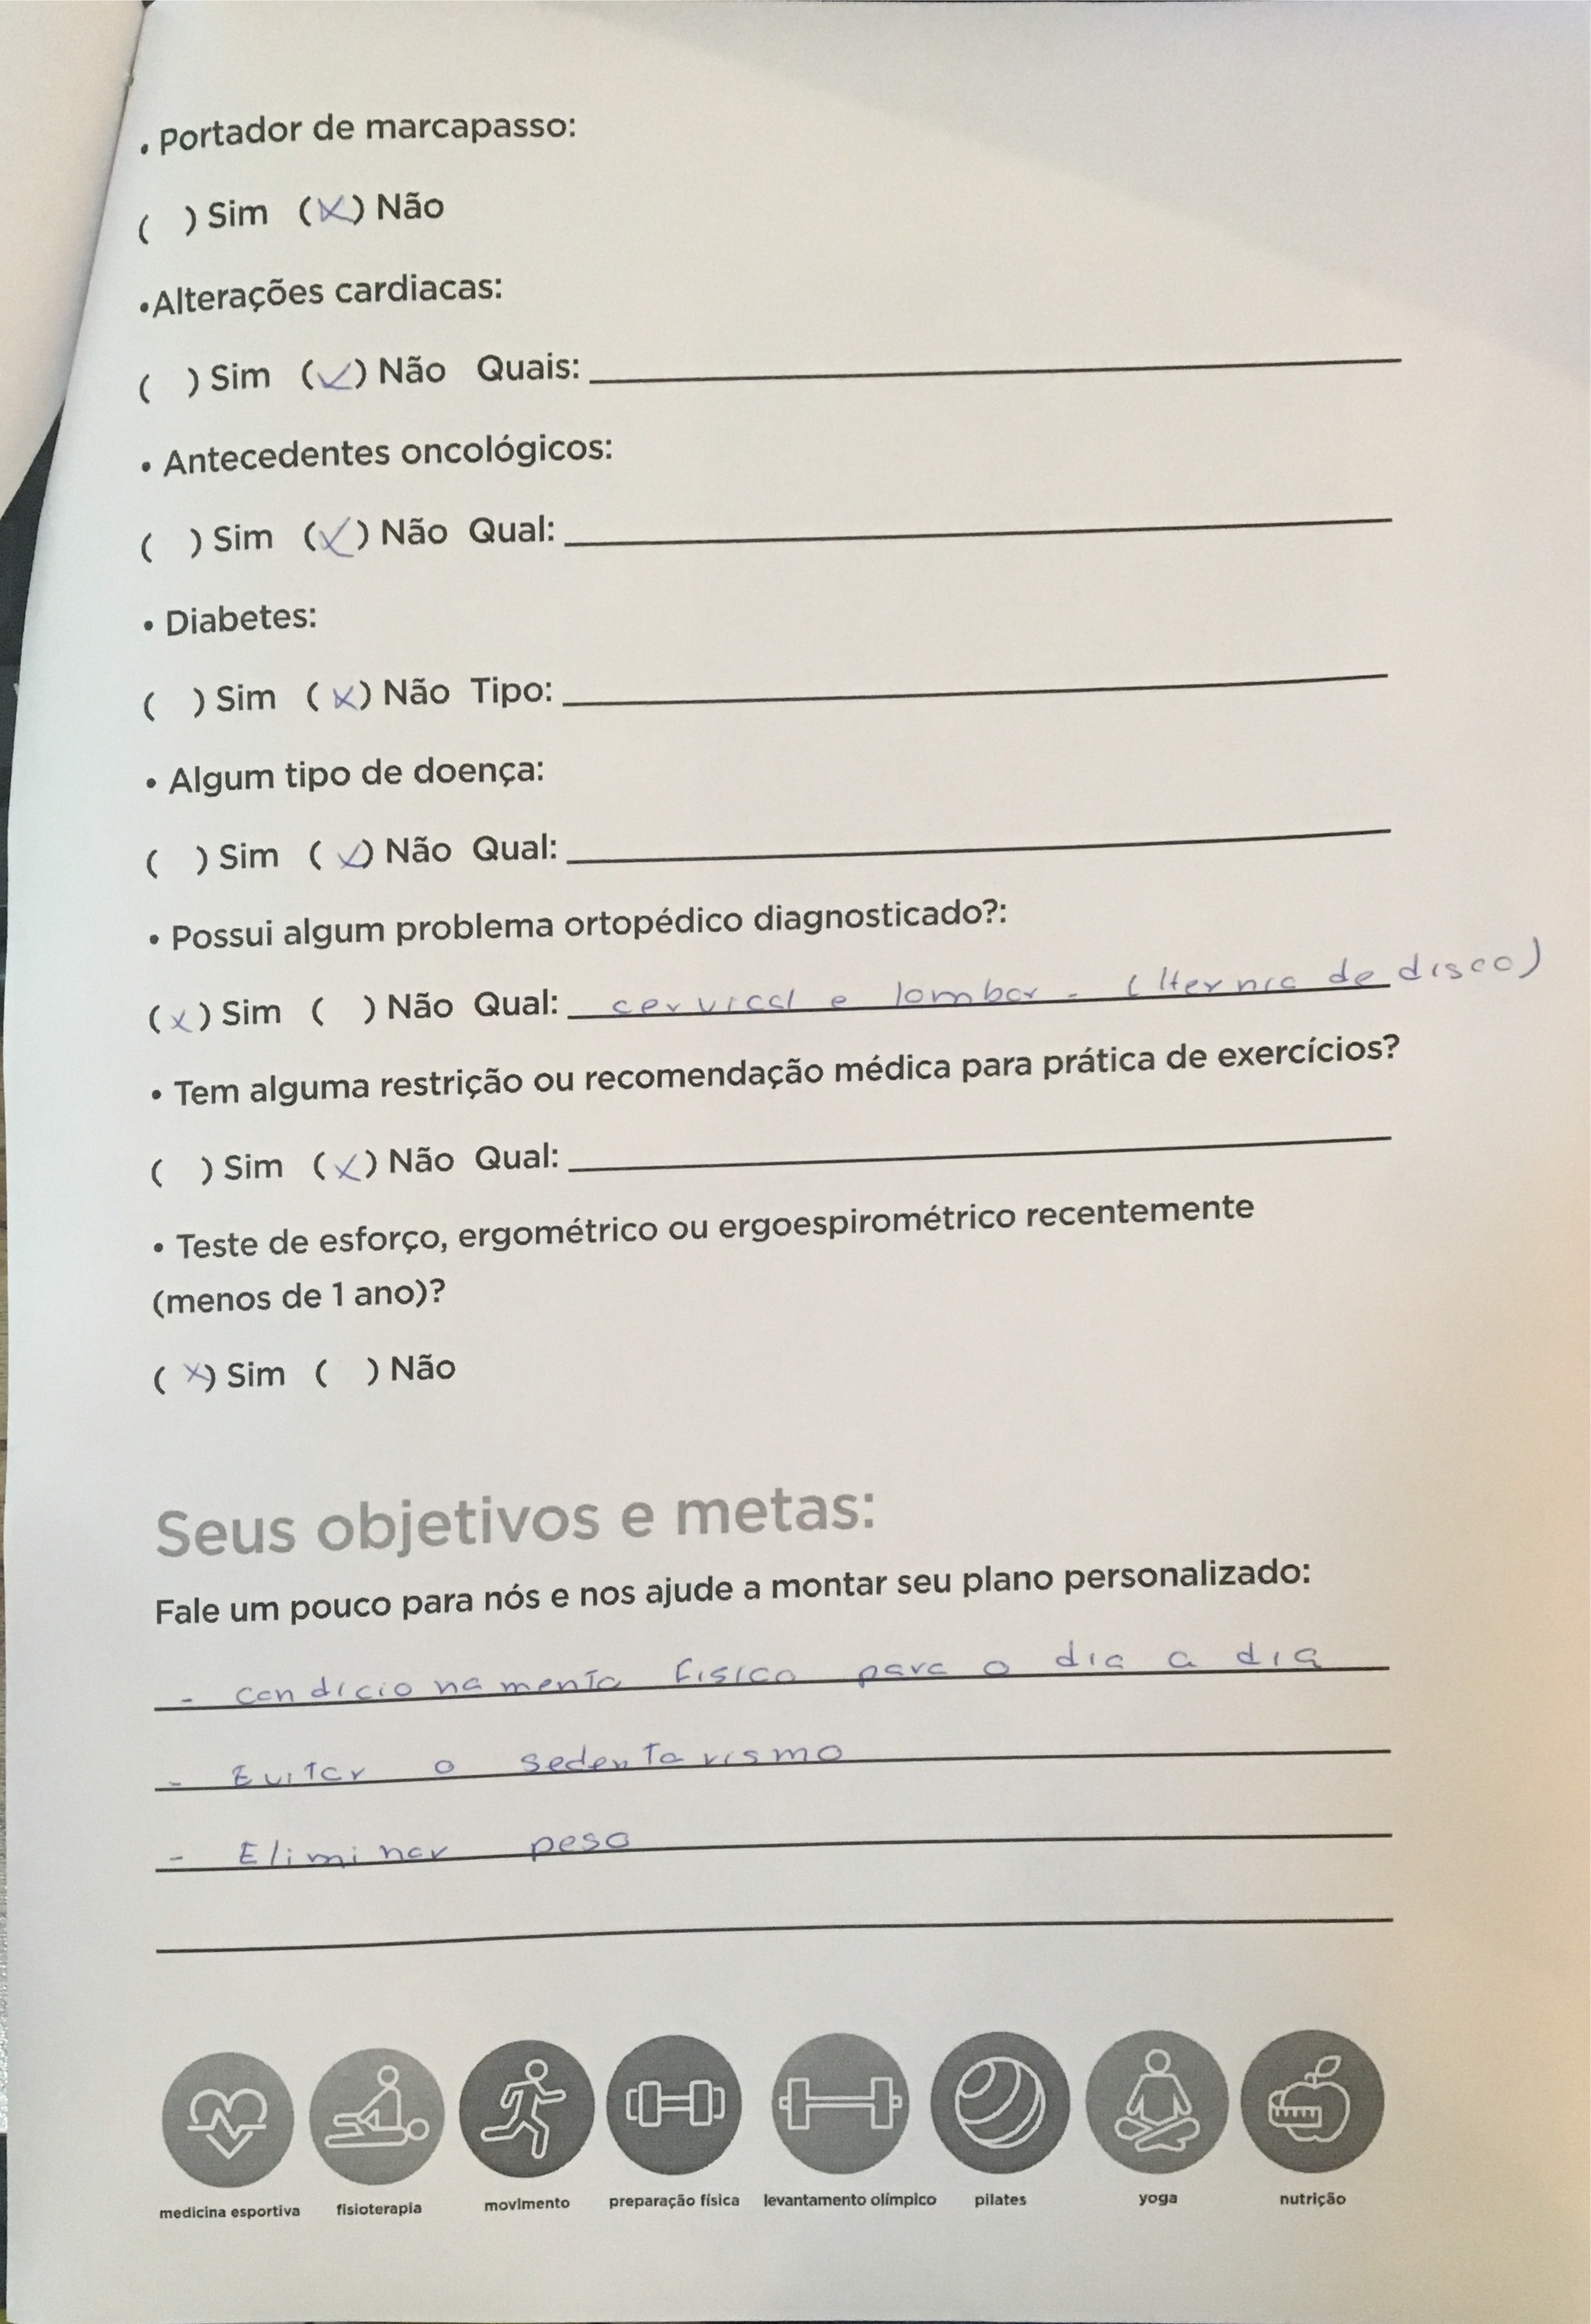 • Portador de marcapasso:
( ) Sim (X) Não
•Alterações cardiacas:
( ) Sim (X) Não Quais:
• Antecedentes oncológicos:
( ) Sim (X) Não Qual:
• Diabetes:
( ) Sim (X) Não Tipo:
• Algum tipo de doença:
( ) Sim (X) Não Qual:
• Possui algum problema ortopédico diagnosticado?:
(X) Sim ( ) Não Qual: cervical e lombar - (Hernia de disco)
• Tem alguma restrição ou recomendação médica para prática de exercícios?
( ) Sim (X) Não Qual:
• Teste de esforço, ergométrico ou ergoespirométrico recentemente
(menos de 1 ano)?
(X) Sim ( ) Não
Seus objetivos e metas:
Fale um pouco para nós e nos ajude a montar seu plano personalizado:
- Condicionamento fisico para o dia a dia
- Evitar o sedentarismo
- Eliminar peso
medicina esportiva fisioterapia movimento preparação física levantamento olímpico pilates yoga nutrição